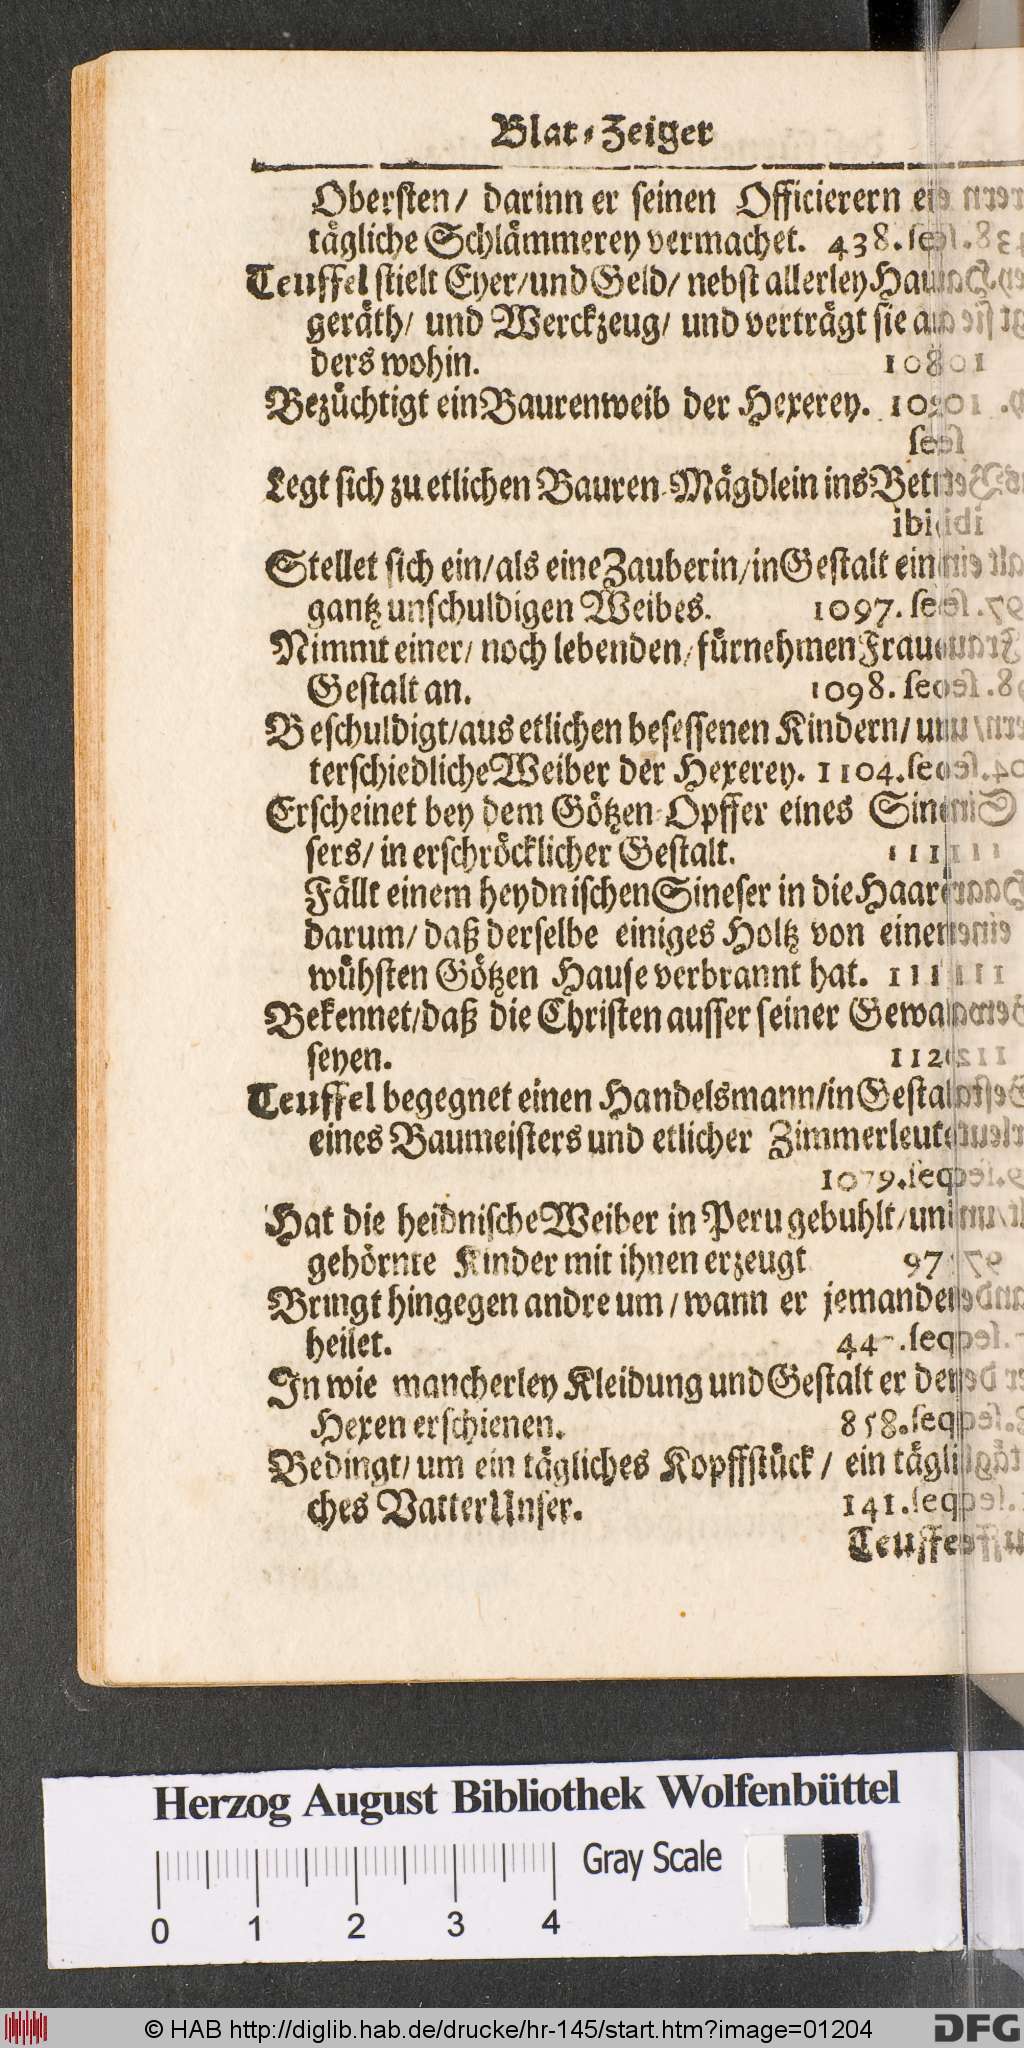 Blat-Zeiger
Obersten/ darinn er seinen Officierern
tägliche Schlämmerey vermachet. 438.
Teuffel stielt Eyer/und Geld/ nebst allerley
geräth/ und Werckzeug/ und verträgt sie
ders wohin.
Bezüchtigt ein Baurenweib der Hexerey.
Legt sich zu etlichen Bauren-Mägdlein ins
Stellet sich ein/als eine Zauberin/in Gestalt
gantz unschuldigen Weibes. 1097.
Nimmt einer/ noch lebenden/ fürnehmen
Gestalt an. 1098.
Beschuldigt/aus etlichen besessenen Kindern/
terschiedliche Weiber der Hexerey. 1104.
Erscheinet bey dem Götzen-Opffer eines
sers/ in erschröcklicher Gestalt.
Fällt einem heydnischen Sineser in die
darum/ daß derselbe einiges Holtz von
wühsten Götzen Hause verbrannt hat.
Bekennet/daß die Christen ausser seiner
seyen.
Teuffel begegnet einen Handelsmann/in
eines Baumeisters und etlicher
1079.
Hat die heidnische Weiber in Peru gebuhlt/
gehörnte Kinder mit ihnen erzeugt
Bringt hingegen andre um/ wann er
heilet.
In wie mancherley Kleidung und Gestalt er
Hexen erschienen. 858.
Bedingt/ um ein tägliches Kopffstück/ ein
ches Vatter Unser. 141.
Herzog August Bibliothek Wolfenbüttel
Gray Scale
0 1 2 3 4
© HAB http://diglib.hab.de/drucke/hr-145/start.htm?image=01204
DFG